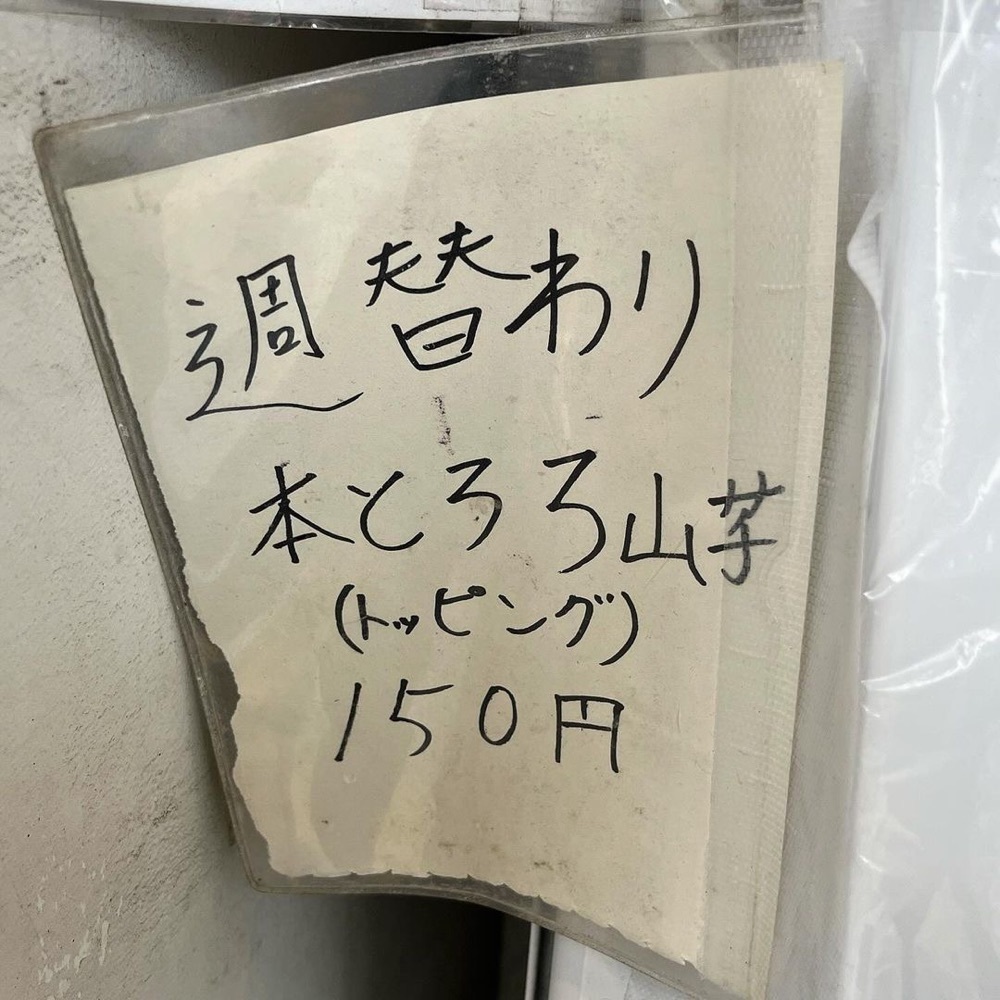 週替わり
本とろろ山芋
(トッピング)
150円